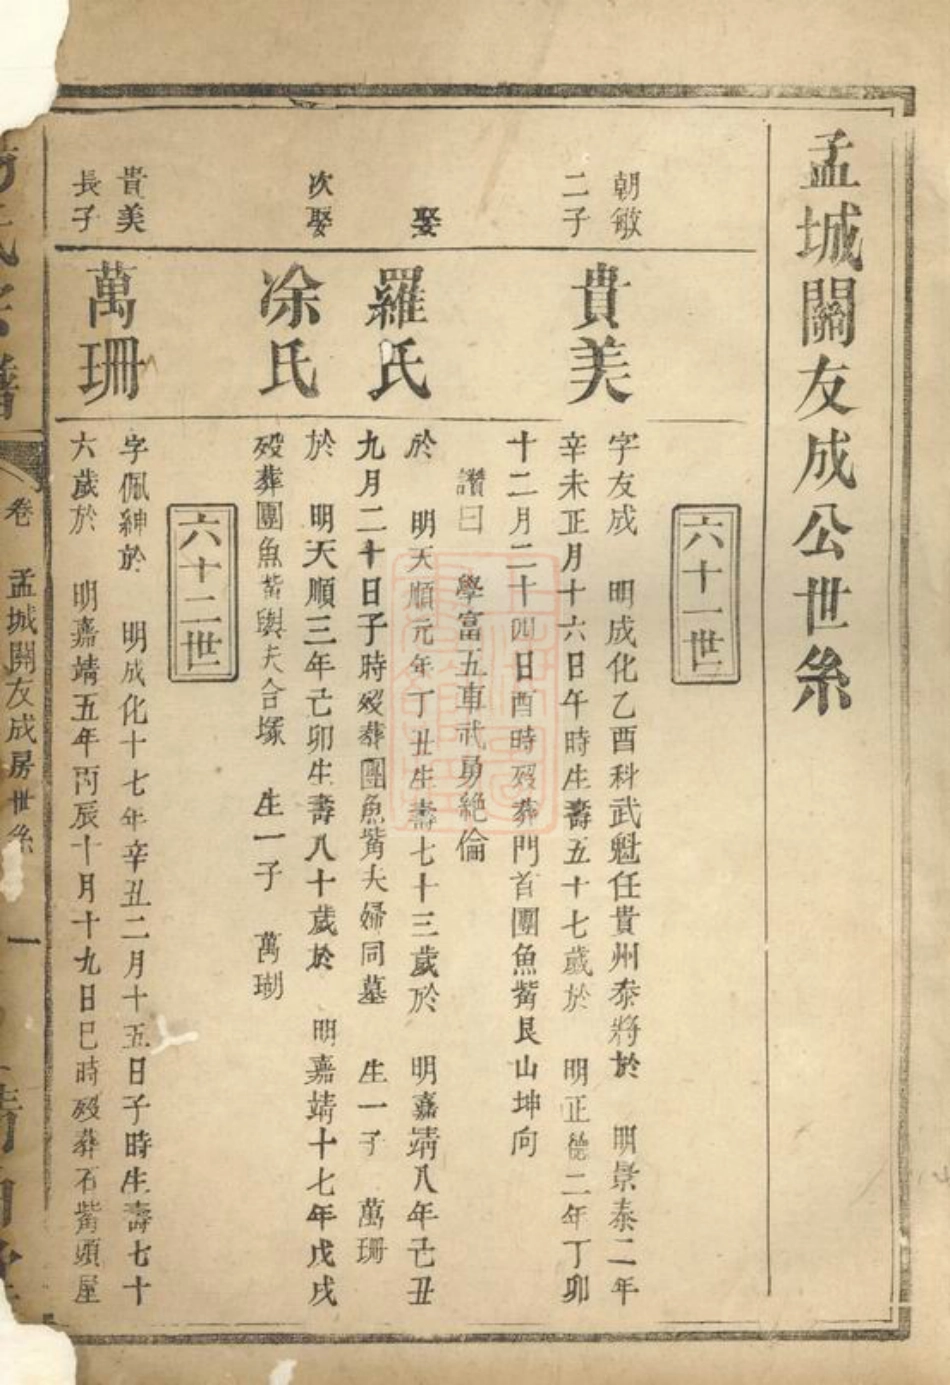 孟城關友成公世系
六十一世
朝敏
二子
貴美
字友成　明成化乙酉科武魁任貴州泰將於　明景泰二年
辛未正月十六日午時生壽五十七歲於　明正德二年丁卯
十二月二十四日酉時歿葬門首團魚觜艮山坤向
讚曰　學富五車武勇絶倫
娶
羅氏
於　明天順元年丁丑生壽七十三歲於　明嘉靖八年己丑
九月二十日子時歿葬團魚觜夫婦同墓　生一子　萬珊
次娶
凃氏
於　明天順三年己卯生壽八十歲於　明嘉靖十七年戊戌
歿葬團魚觜與夫合塚　生一子　萬瑚
六十二世
貴美
長子
萬珊
字佩紳於　明成化十七年辛丑二月十五日子時生壽七十
六歲於　明嘉靖五年丙辰十月十九日巳時歿葬石觜頭屋
卷　孟城關友成房世系
一